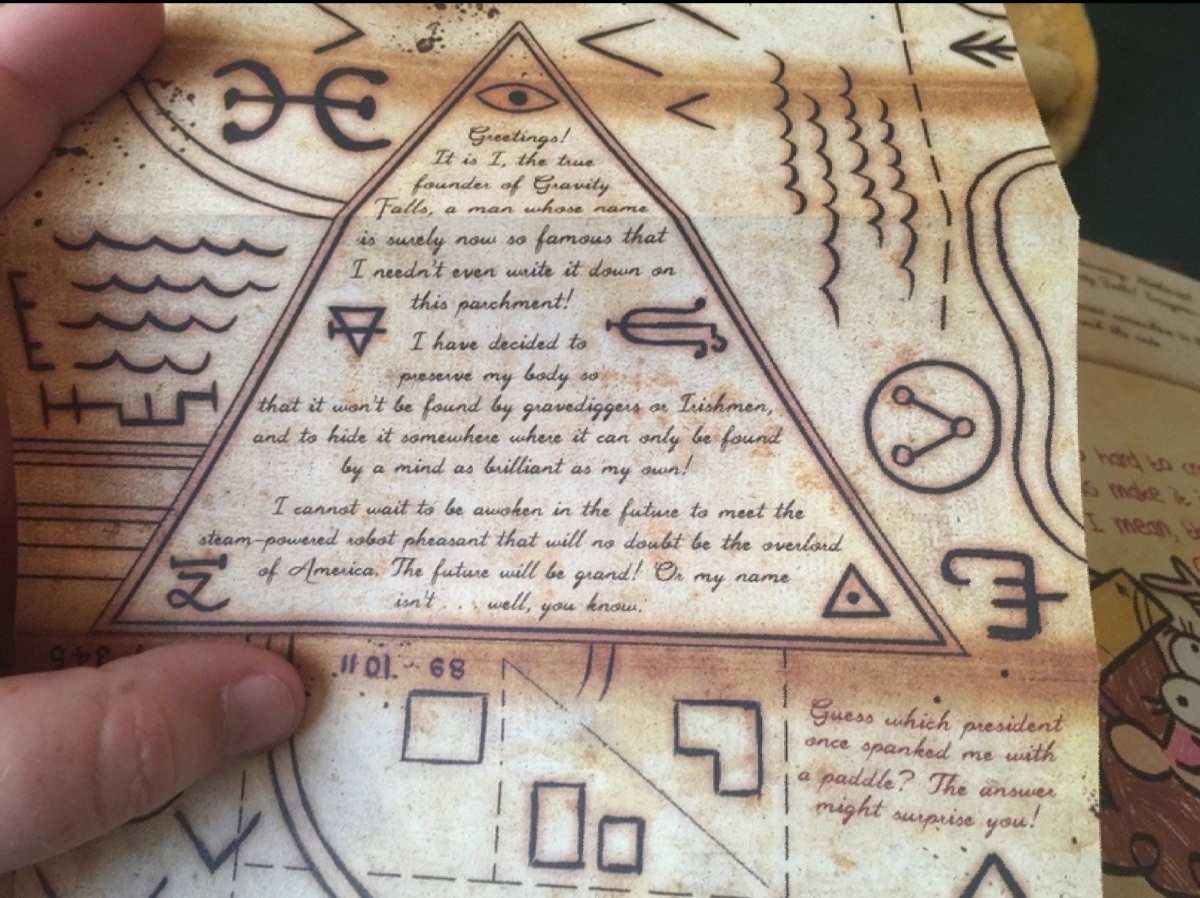 Greetings!
It is I, the true
founder of Gravity
Falls, a man whose name
is surely now so famous that
I needn't even write it down on
this parchment!
I have decided to
preserve my body so
that it won't be found by gravediggers or Irishmen,
and to hide it somewhere where it can only be found
by a mind as brilliant as my own!
I cannot wait to be awoken in the future to meet the
steam-powered robot pheasant that will no doubt be the overlord
of America. The future will be grand! Or my name
isn't . . . well, you know.
345
11 01
89
Guess which president
once spanked me with
a paddle? The answer
might surprise you!
hard to
make it
I mean,